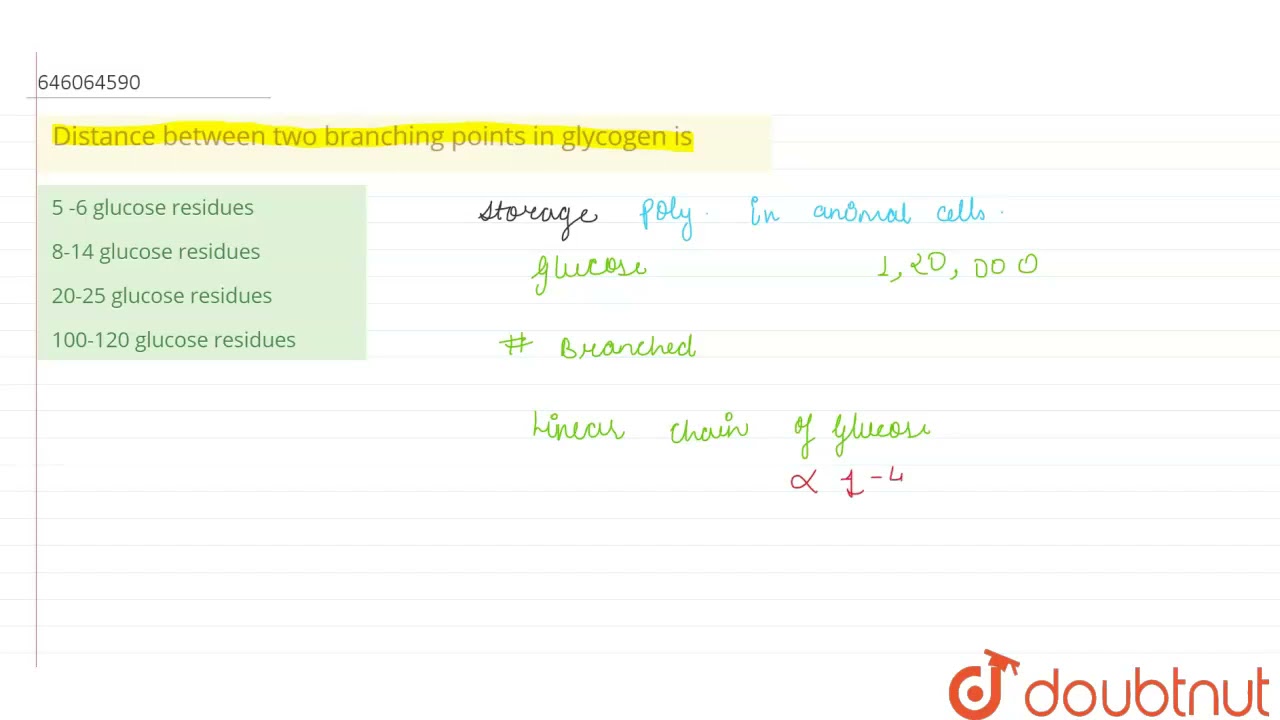 646064590
Distance between two branching points in glycogen is
5 -6 glucose residues
8-14 glucose residues
20-25 glucose residues
100-120 glucose residues
Storage Poly. In animal cells.
Glucose 1,20,000
# Branched
Linear Chain of Glucose
α 1-4
doubtnut